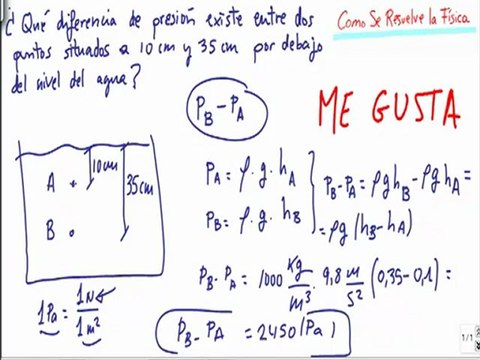 ¿Qué diferencia de presión existe entre dos
puntos situados a 10cm y 35cm por debajo
del nivel del agua?
Como Se Resuelve la Física
P_B - P_A
ME GUSTA
10cm
35cm
A
B
P_A = ρ · g · h_A
P_B = ρ · g · h_B
P_B - P_A = ρgh_B - ρgh_A =
= ρg (h_B - h_A)
P_B - P_A = 1000 Kg/m³ · 9,8 m/s² (0,35 - 0,1) =
1Pa = 1N/1m²
P_B - P_A = 2450 (Pa)
1/1